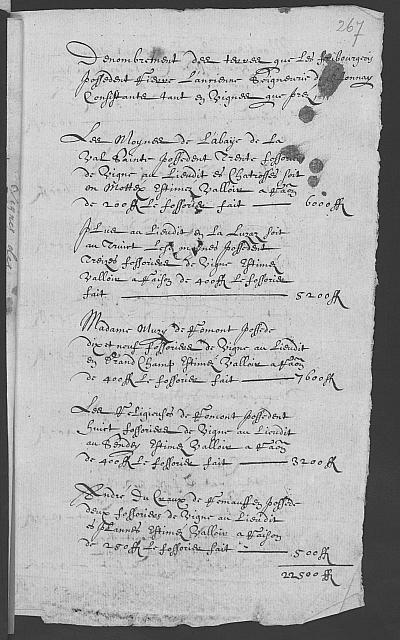 267
Denombrement des terres que Les fribourgeois
possedent riere Lancienne Seigneurie de
Consistante tant en Vignes que prez
Les Moynes de Labaÿe de La
Val Sainte possedent Trente fossorier
de Vigne au Lieudit es Chatosses soit
en Mottex estimez Valloir a raõn
de 200ff Le fossorier fait 6000ff
plus au Lieudit en La soit
au Les moynes possedent
Treizes fossoriers de Vigne estimez
Valloir a raison de 400ff Le fossorier
fait 5200ff
Madame Mury de Romont possede
dix et neuf fossoriers de Vigne au Lieudit
en Grand Champ estimez Valloir a raõn
de 400ff Le fossorier fait 7600ff
Les Religieuses de Romont possedent
huict fossoriers de Vigne au Lieudit
au Sendey estimez Valloir a raõn
de 400ff Le fossorier fait 3200ff
Andre Du Craux de possede
deux fossoriers de Vigne au Lieudit
es plannes estimez Valloir a raison
de 250ff Le fossorier fait 500ff
22500ff